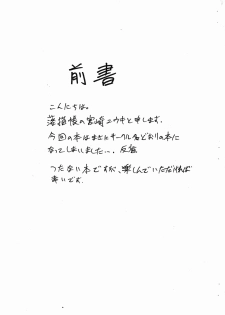 前書
こんにちは。
落描帳の宮崎ユウヤと申します。
今回の本はまさにサークル名どおりの本に
なってしまいました…。反省
つたない本ですが、楽しんでいただければ
幸いです。